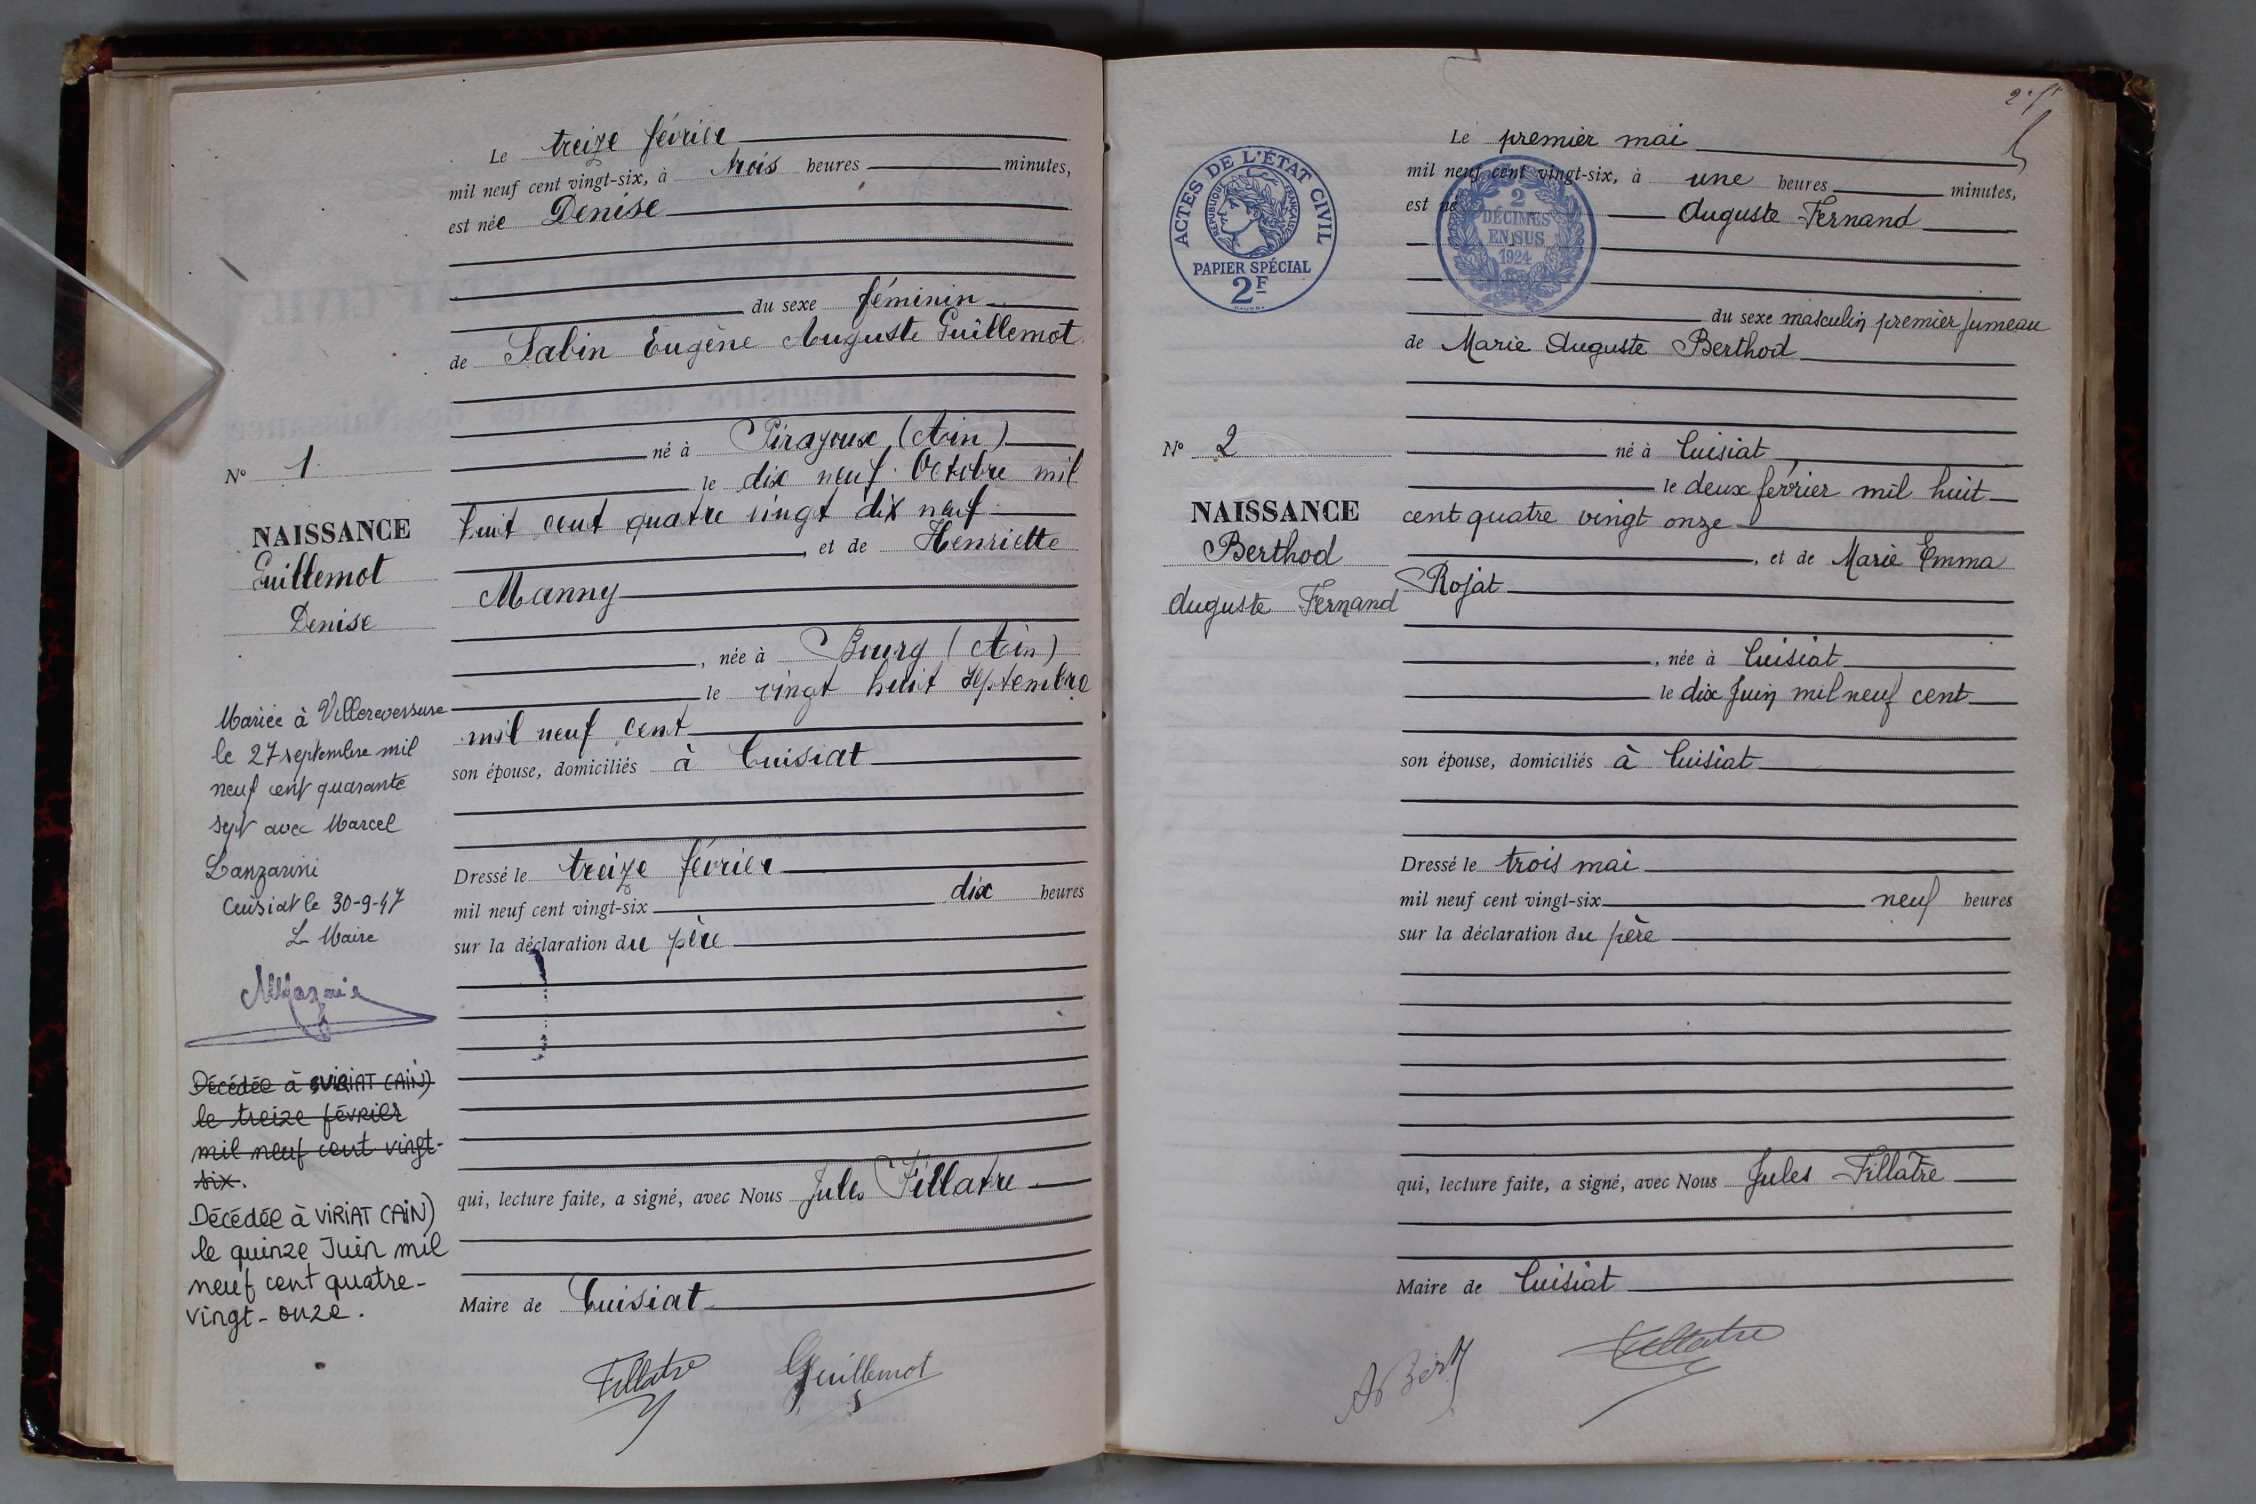 Le treize février
mil neuf cent vingt-six, à trois heures minutes,
est née Denise
du sexe féminin
de Sabin Eugène Auguste Guillemot
né à Pirajoux (Ain)
le dix neuf Octobre mil
huit cent quatre vingt dix neuf
et de Henriette
Manny
, née à Bourg (Ain)
le vingt huit Septembre
mil neuf cent
son épouse, domiciliés à Cuisiat
Dressé le treize février
mil neuf cent vingt-six dix heures
sur la déclaration du père
qui, lecture faite, a signé, avec Nous Jules Fillatre
Maire de Cuisiat
Fillatre Guillemot
N° 1
NAISSANCE
Guillemot
Denise
Mariée à Villereversure
le 27 septembre mil
neuf cent quarante
sept avec Marcel
Lanzarini
Cuisiat le 30-9-47
Le Maire
Décédée à VIRIAT (AIN)
le treize février
mil neuf cent vingt-
six.
Décédée à VIRIAT (AIN)
le quinze Juin mil
neuf cent quatre-
vingt-onze.
ACTES DE L'ÉTAT CIVIL
RÉPUBLIQUE FRANÇAISE
PAPIER SPÉCIAL
2F
2
DÉCIMES
EN SUS
1924
Le premier mai
mil neuf cent vingt-six, à une heures minutes,
est né Auguste Fernand
du sexe masculin premier jumeau
de Marie Auguste Berthod
né à Cuisiat
le deux février mil huit
cent quatre vingt onze
, et de Marie Emma
Rojat
, née à Cuisiat
le dix Juin mil neuf cent
son épouse, domiciliés à Cuisiat
Dressé le trois mai
mil neuf cent vingt-six neuf heures
sur la déclaration du père
qui, lecture faite, a signé, avec Nous Jules Fillatre
Maire de Cuisiat
Fillatre
N° 2
NAISSANCE
Berthod
Auguste Fernand